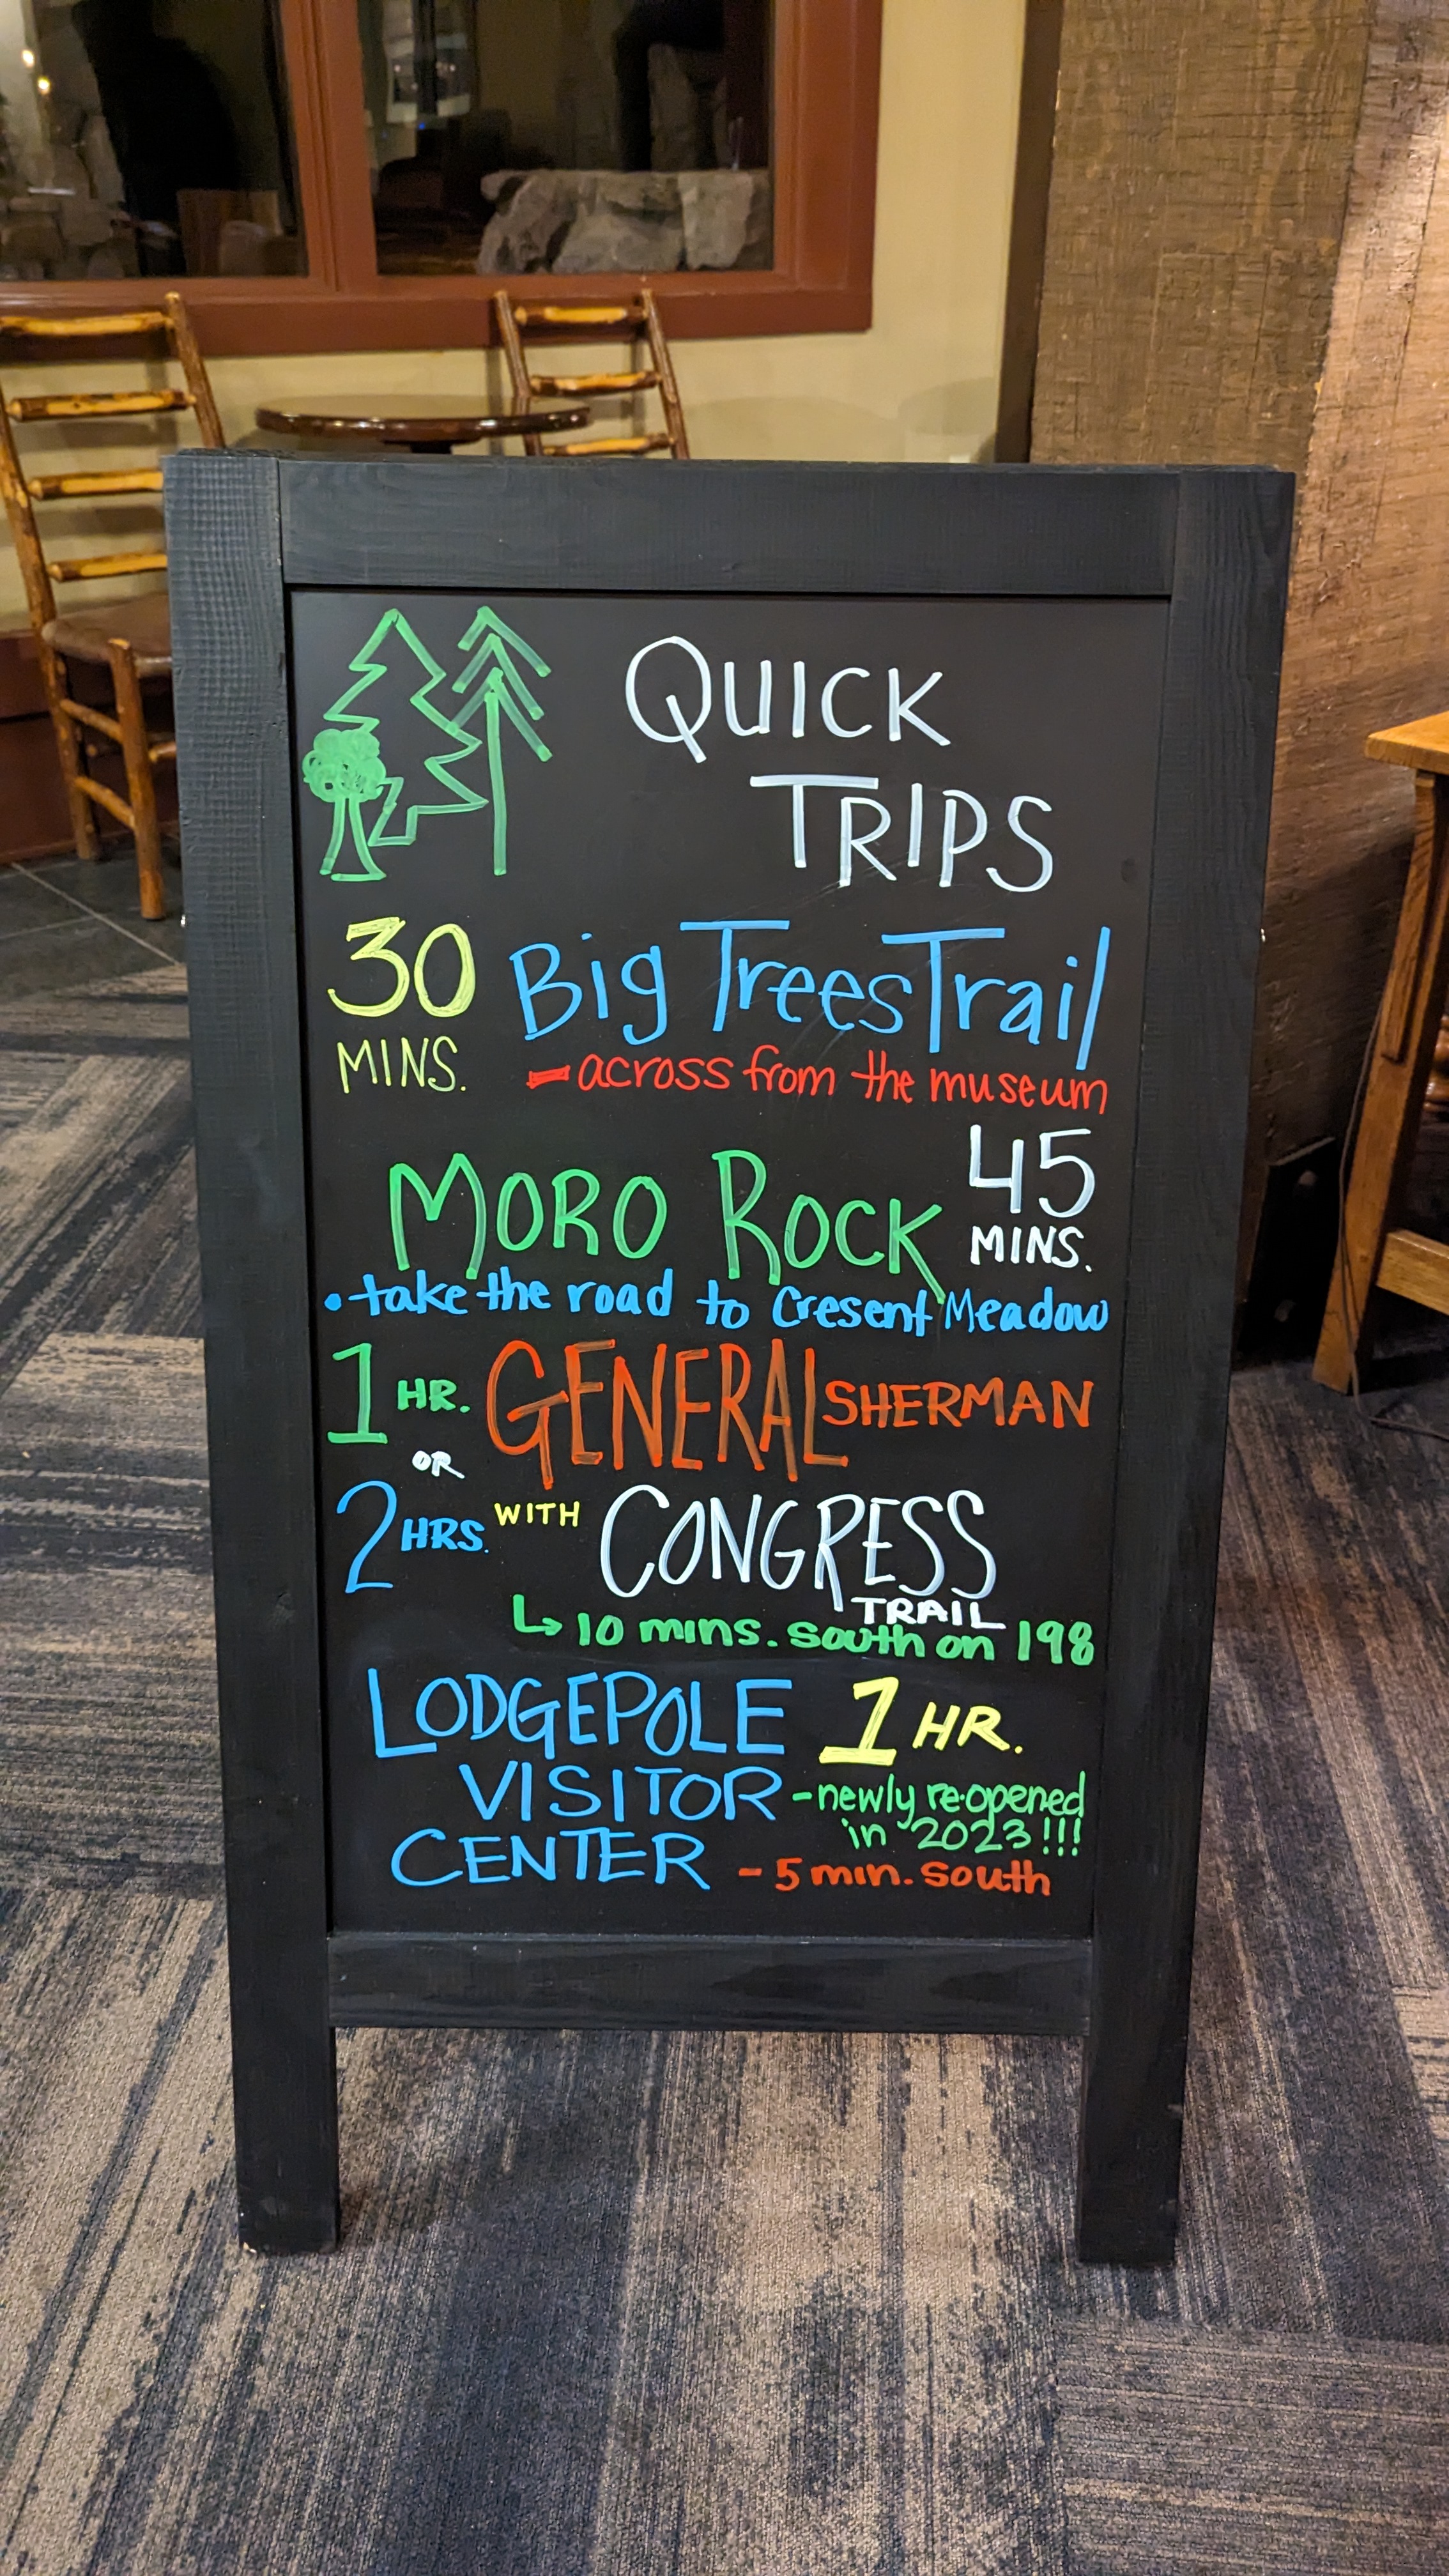 QUICK
TRIPS
30 MINS. Big Trees Trail
- across from the museum
MORO ROCK 45 MINS.
• take the road to Cresent Meadow
1 HR. GENERAL SHERMAN
OR
2 HRS. WITH CONGRESS
TRAIL
↳ 10 mins. south on 198
LODGEPOLE 1 HR.
VISITOR - newly re-opened
in 2023!!!
CENTER - 5 min. south